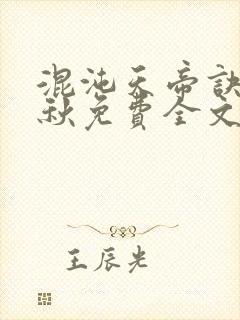 混沌天帝訣
秋免費全文
王辰光